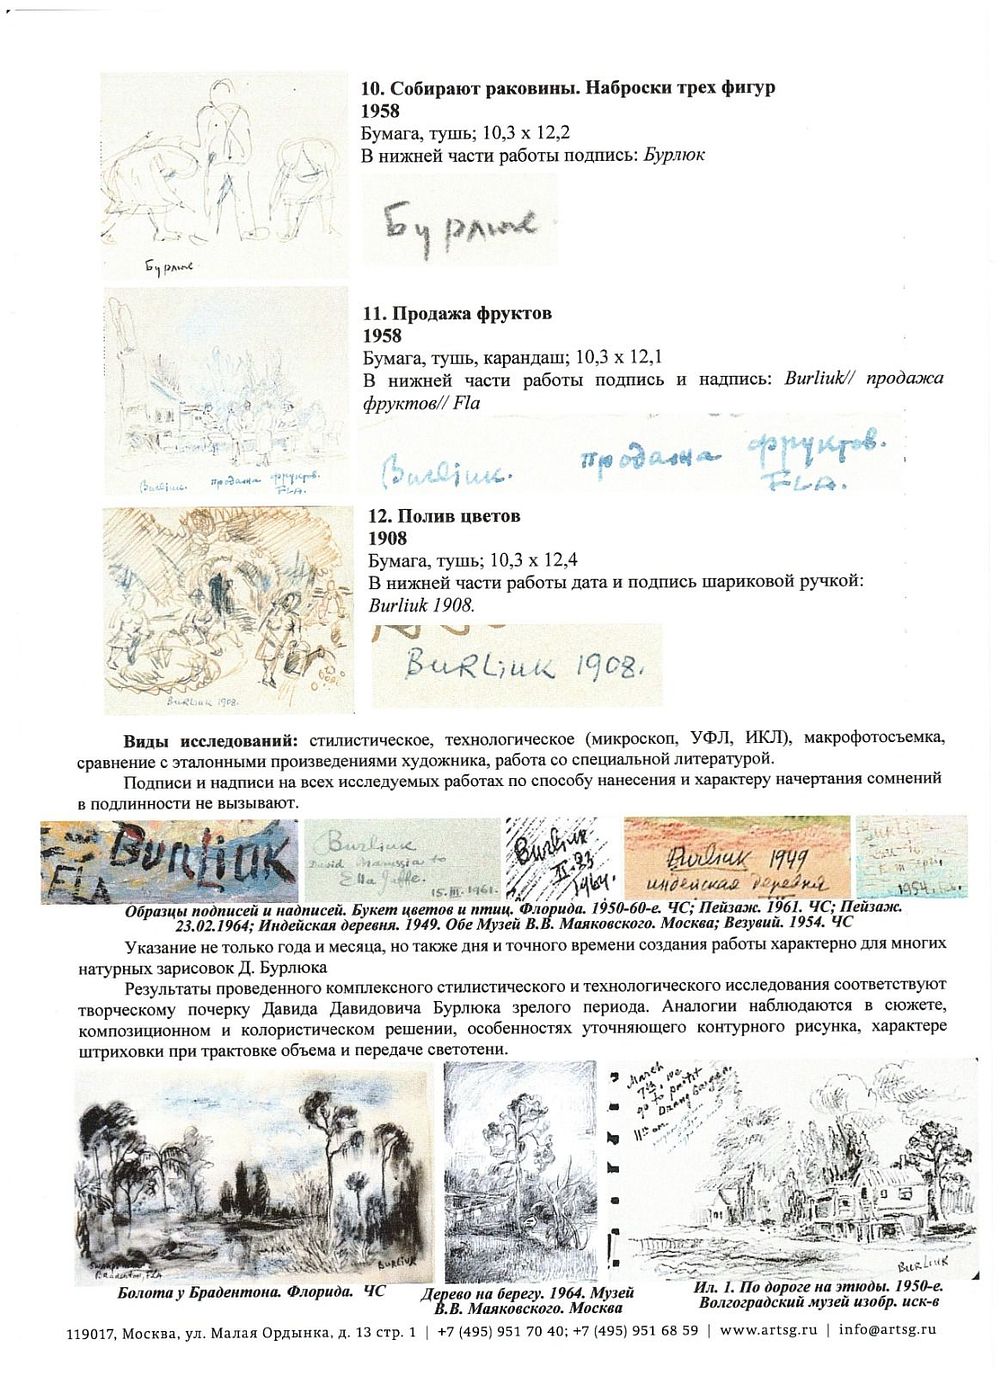 10. Собирают раковины. Наброски трех фигур
1958
Бумага, тушь; 10,3 х 12,2
В нижней части работы подпись: Бурлюк
Бурлюк
Бурлюк
11. Продажа фруктов
1958
Бумага, тушь, карандаш; 10,3 х 12,1
В нижней части работы подпись и надпись: Burliuk// продажа
фруктов// Fla
Burliuk. продажа фруктов.
FLA.
Burliuk. продажа фруктов.
FLA.
12. Полив цветов
1908
Бумага, тушь; 10,3 х 12,4
В нижней части работы дата и подпись шариковой ручкой:
Burliuk 1908.
BuRLiuk 1908.
BuRLiuk 1908.
Виды исследований: стилистическое, технологическое (микроскоп, УФЛ, ИКЛ), макрофотосъемка,
сравнение с эталонными произведениями художника, работа со специальной литературой.
Подписи и надписи на всех исследуемых работах по способу нанесения и характеру начертания сомнений
в подлинности не вызывают.
BURLIUK
FLA
Burliuk
David to
Ella Jaffe.
15.III.1961.
Burliuk
II.23
1964.
Burliuk 1949
индейская деревня
1954.
Образцы подписей и надписей. Букет цветов и птиц. Флорида. 1950-60-е. ЧС; Пейзаж. 1961. ЧС; Пейзаж.
23.02.1964; Индейская деревня. 1949. Обе Музей В.В. Маяковского. Москва; Везувий. 1954. ЧС
Указание не только года и месяца, но также дня и точного времени создания работы характерно для многих
натурных зарисовок Д. Бурлюка
Результаты проведенного комплексного стилистического и технологического исследования соответствуют
творческому почерку Давида Давидовича Бурлюка зрелого периода. Аналогии наблюдаются в сюжете,
композиционном и колористическом решении, особенностях уточняющего контурного рисунка, характере
штриховки при трактовке объема и передаче светотени.
March
7th, we
go to paint
11th am.
Bradenton, FLA
BURLIUK
BURLIUK
Болота у Брадентона. Флорида. ЧС
Дерево на берегу. 1964. Музей
В.В. Маяковского. Москва
Ил. 1. По дороге на этюды. 1950-е.
Волгоградский музей изобр. иск-в
119017, Москва, ул. Малая Ордынка, д. 13 стр. 1 | +7 (495) 951 70 40; +7 (495) 951 68 59 | www.artsg.ru | info@artsg.ru